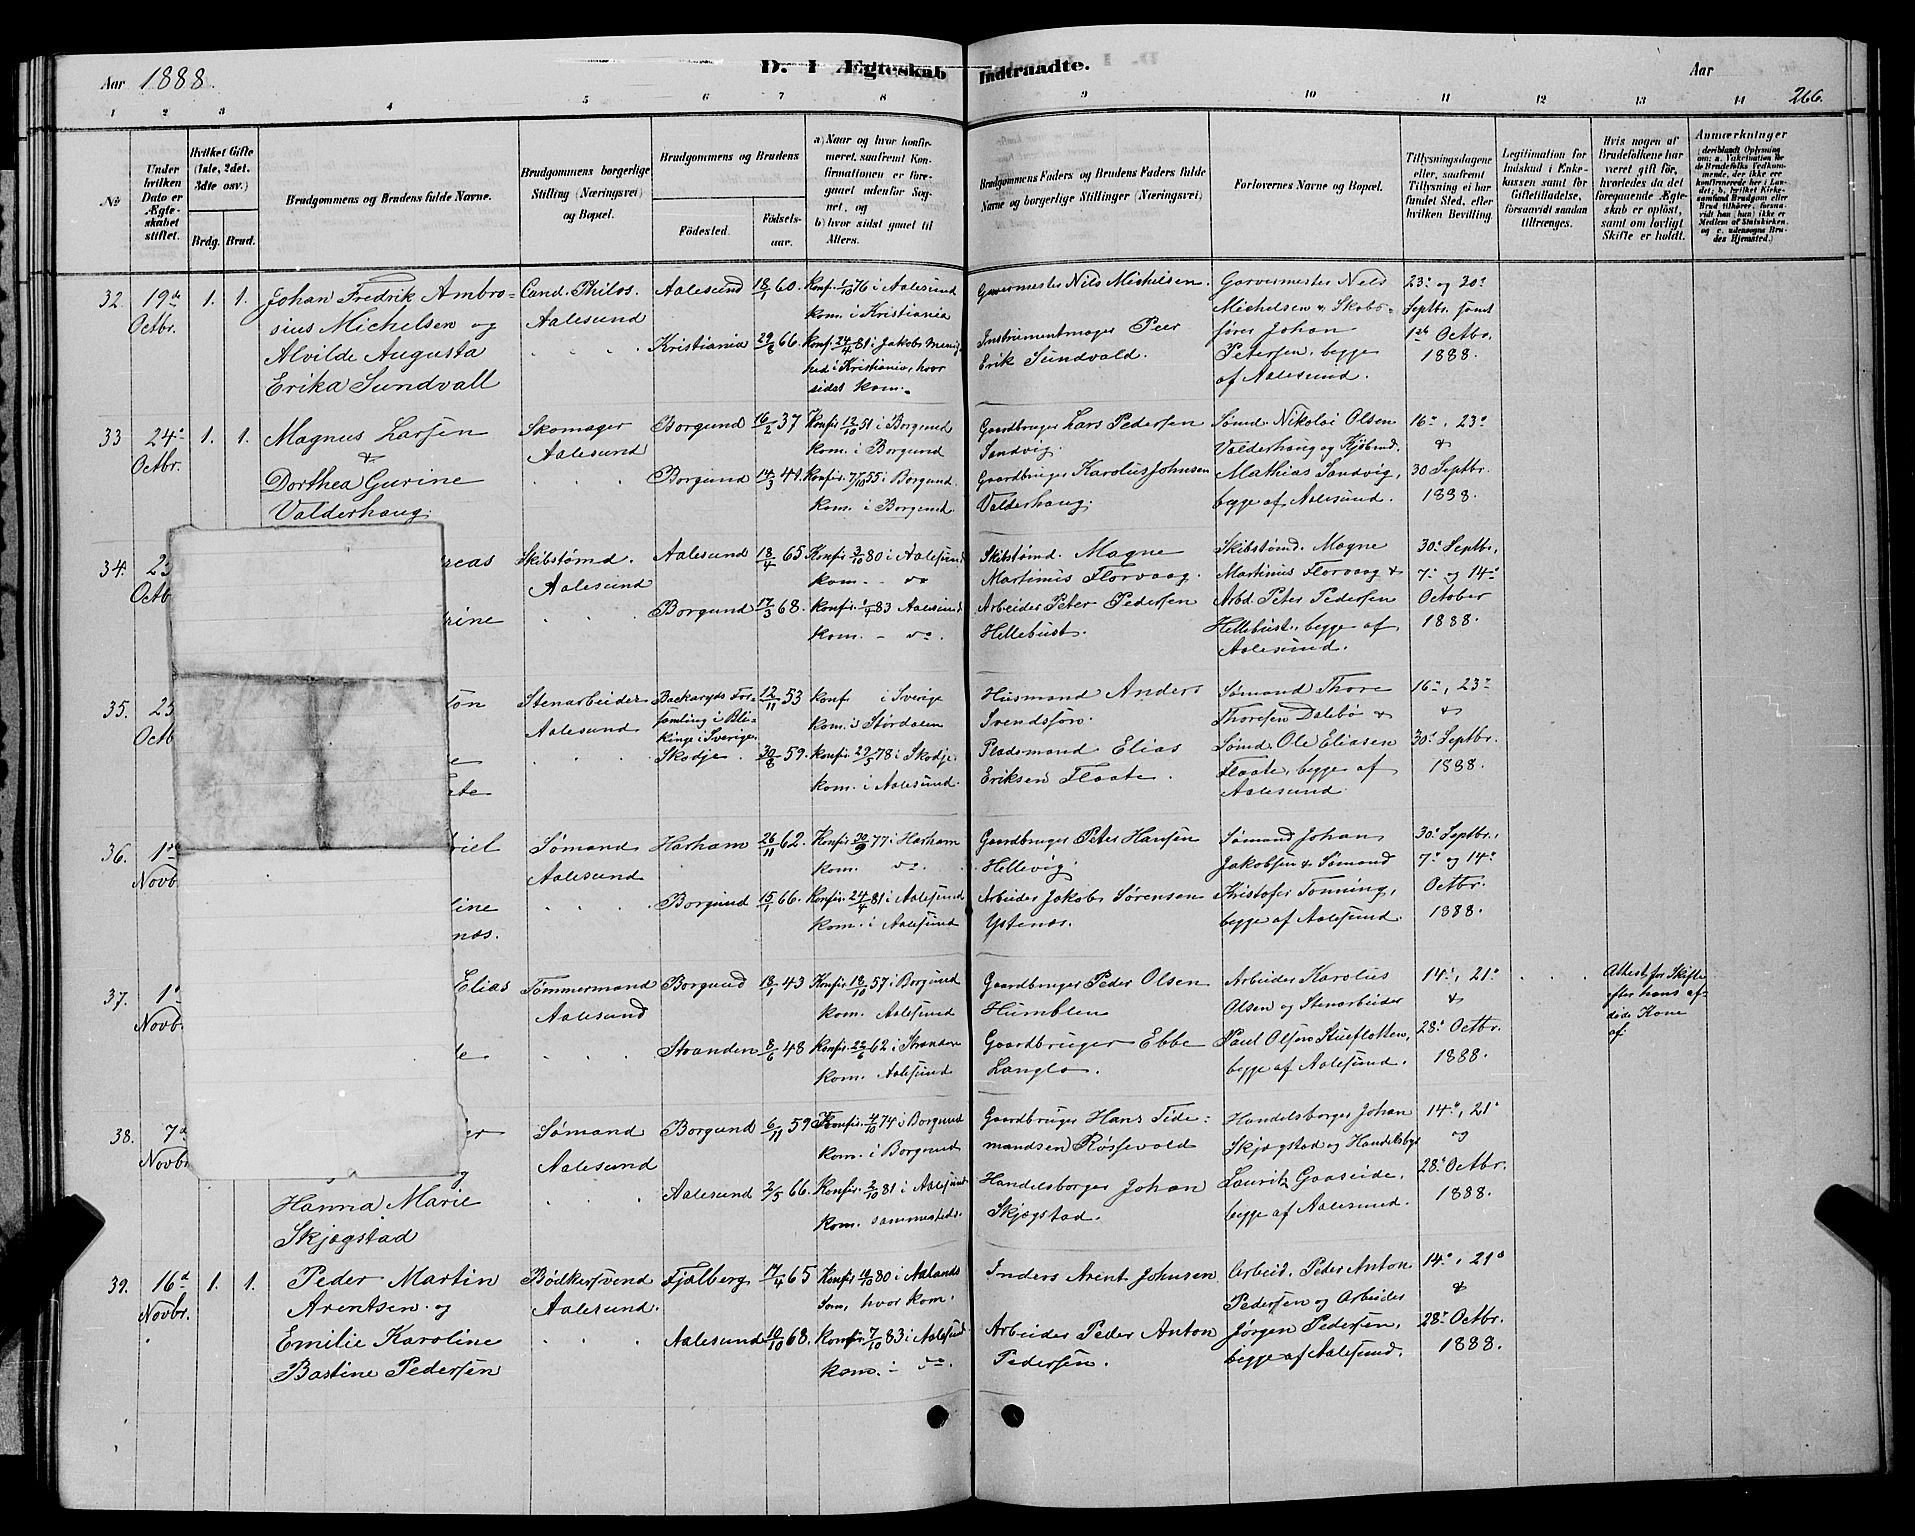 Aar 1888.
D. I Ægteskab Indtraadte.
Aar
266.
1 2 3 4 5 6 7 8 9 10 11 12 13 14
No
Under hvilken Dato er Ægteskabet stiftet.
Hvilket Gifte (1ste, 2det, 3dte osv.)
Brdg. Brud.
Brudgommens og Brudens fulde Navne.
Brudgommens borgerlige Stilling (Næringsvei) og Bopæl.
Brudgommens og Brudens
Fødested.
Fødselsaar.
a) Naar og hvor konfirmeret, saafremt Konfirmationen er foregaaet udenfor Sognet, og
b) hvor sidst gaaet til Alters.
Brudgommens Faders og Brudens Faders fulde Navne og borgerlige Stillinger (Næringsvei)
Forlovernes Navne og Bopæl.
Tillysningsdagene eller, saafremt Tillysning ei har fundet Sted, efter hvilken Bevilling.
Legitimation for Indskud i Enkekassen samt for Giftetilladelse, forsaavidt saadan tiltrænges.
Hvis nogen af Brudefolkene har været gift før, hvorledes da det foregaaende Ægteskab er opløst, samt om lovligt Skifte er holdt.
Anmærkninger
32. 19de Octbr. 1. 1.
Johan Fredrik Ambro=
sius Michelsen og
Alvilde Augusta
Erika Sundvall
Cand. Philos.
Aalesund
Aalesund 18/1 60.
Kristiania 29/8 66.
Konf. 1/10 76 i Aalesund
kom. i Kristiania
Konf. 24/4 81 i Jakobs Menig
hed i Kristiania, hvor
sidst kom.
Garvermester Nils Michelsen.
Instrumentmager Peer
Erik Sundvald.
Garvermester Nils
Michelsen & Skibs=
fører Johan
Petersen, begge
af Aalesund.
23de og 30de
Septbr. samt
1ste Octbr.
1888.
33 24de Octbr. 1. 1.
Magnus Larsen
&
Dorthea Gurine
Valderhaug.
Skomager
Aalesund
Borgund 16/2 37
Borgund 14/3 41.
Konfir. 12/10 51 i Borgund
kom. i Borgund
Konfir. 7/10 55 i Borgund.
kom. i Borgund.
Gaardbruger Lars Pedersen
Sandvig.
Gaardbruger Karolus Johnsen
Valderhaug.
Sømd. Nikolai Olsen
Valderhaug og Kjøbmd.
Mathias Sandvig,
begge af Aalesund.
16de, 23de
&
30 Septbr.
1888.
34. 25 Octb
reas
rine
Skibstømd.
Aalesund
Aalesund 18/4 65
Borgund 17/3 68.
Konfir. 3/10 80 i Aalesund
kom. - do
Konfir. 1/4 83 Aalesund
kom. - do.
Skibstømd. Magne
Martinus Florvaag.
Arbeider Peter Pedersen
Hellebust.
Skibstømd. Magne
Martinus Florvaag &
Arbd. Peter Pedersen
Hellebust, begge af
Aalesund.
30de Septbr.,
7de og 14de
October
1888.
35. 25 Octb
ton
e
ate
Stenarbeider
Aalesund
Backaryds For-
samling i Ble-
kinge i Sverige. 12/11 53
Skodje. 30/8 59.
konf i Sverige
kom. i Stordalen
konfir. 29/5 78 i Skodje.
kom. i Aalesund.
Husmand Anders
Svendssøn.
Pladsmand Elias
Eriksen Flaate.
Sømand Thore
Thoresen Dalebø &
Sømd. Ole Eliasen
Flaate, begge af
Aalesund.
16de, 23de
&
30de Septbr.
1888.
36. 1ste Novb
riel
line
næs.
Sømand
Aalesund
Harham 26/11 62.
Borgund 15/1 66.
Konfir. 30/9 77 i Harham
kom. do.
Konfir. 24/4 81 i Aalesund
kom. i Aalesund
Gaardbruger Peter Hansen
Hellevig.
Arbeider Jakob Sørensen
Ystenæs.
Sømand Johan
Jakobsen & Sømand
Kristofer Tonning,
begge af Aalesund.
30de Septbr.,
7de og 14de
Octbr.
1888.
37. 1ste Novb
Elias
le
Tømmermand
Aalesund
Borgund 18/1 43
Stranden 8/6 48
Konfir. 18/10 57 i Borgund
kom. Aalesund
Konfir. 22/6 62 i Stranden
kom. Aalesund
Gaardbruger Peder Olsen
Humblen
Gaardbruger Ebbe
Langlo.
Arbeider Karolus
Olsen og Stenarbeider
Paul Olsen Stueflotten,
begge af Aalesund.
14de, 21de
&
28de Octbr.
1888.
Attest for Skifte
efter hans af-
døde Kone
af
38. 7de Novbr
er
g
Hanna Marie
Skjægstad
Sømand
Aalesund
Borgund 6/11 59
Aalesund 2/5 66.
Konfir. 4/10 74 i Borgund
kom. i Borgund
Konfir. 2/10 81 i Aalesund
kom. sammesteds.
Gaardbruger Hans Tide=
mandsen Røssevold
Handelsborger Johan
Skjægstad.
Handelsborger Johan
Skjægstad og Handelsbgr
Lauritz Gaaseide,
begge af Aalesund.
14de, 21de
og
28de Octbr.
1888.
39. 16de Novbr. 1. 1.
Peder Martin
Arentsen og
Emilie Karoline
Bastine Pedersen
Bødkersvend
Aalesund.
Fjælberg 17/4 65
Aalesund 10/10 68.
Konfir. 10/10 80 i Aalands
Sogn, hvor kom.
Konfir. 7/10 83 i Aalesund
kom. - do.
Inders Arent Johnsen
Arbeider Peder Anton
Pedersen.
Arbeid. Peder Anton
Pedersen og Arbeider
Jørgen Pedersen,
begge af Aalesund.
14de, 21de
&
28de Octbr.
1888.